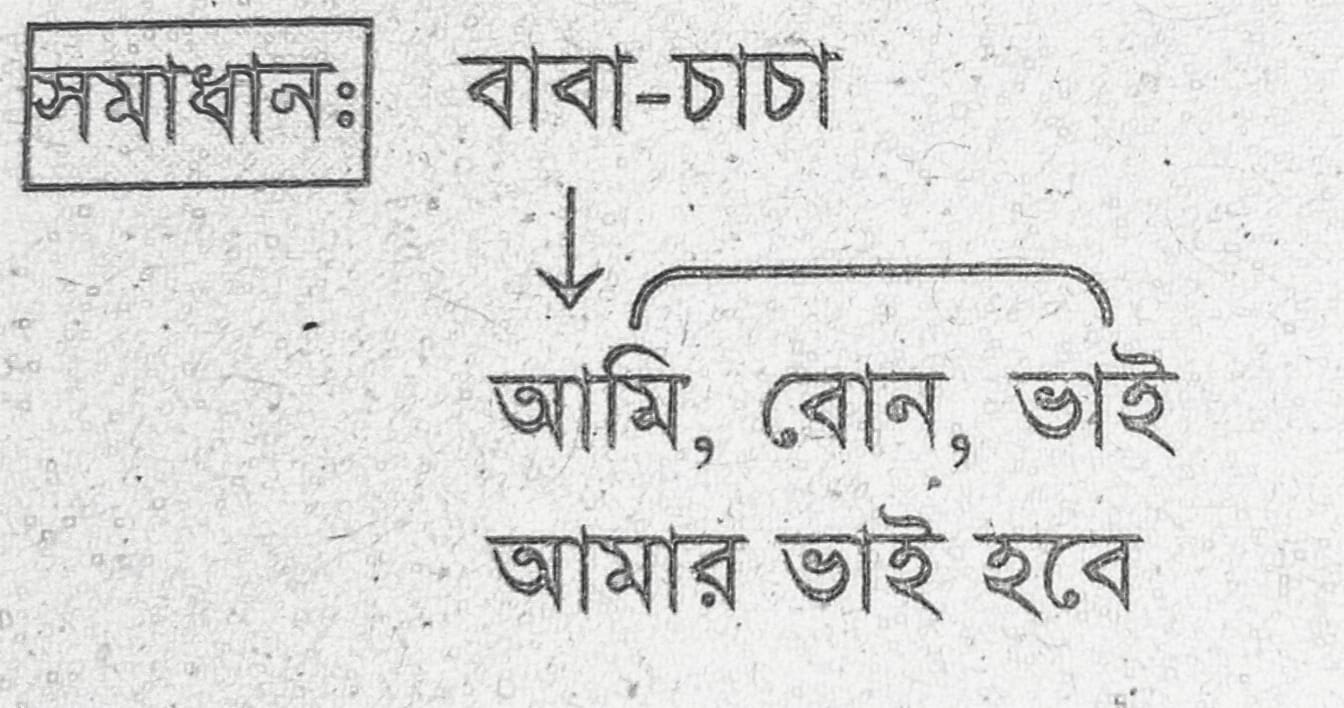 সমাধানঃ বাবা-চাচা
আমি, বোন, ভাই
আমার ভাই হবে